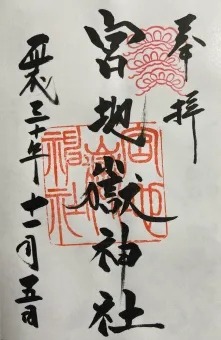 奉拝
宮地嶽神社
平成三十年十一月五日
宮地嶽神社